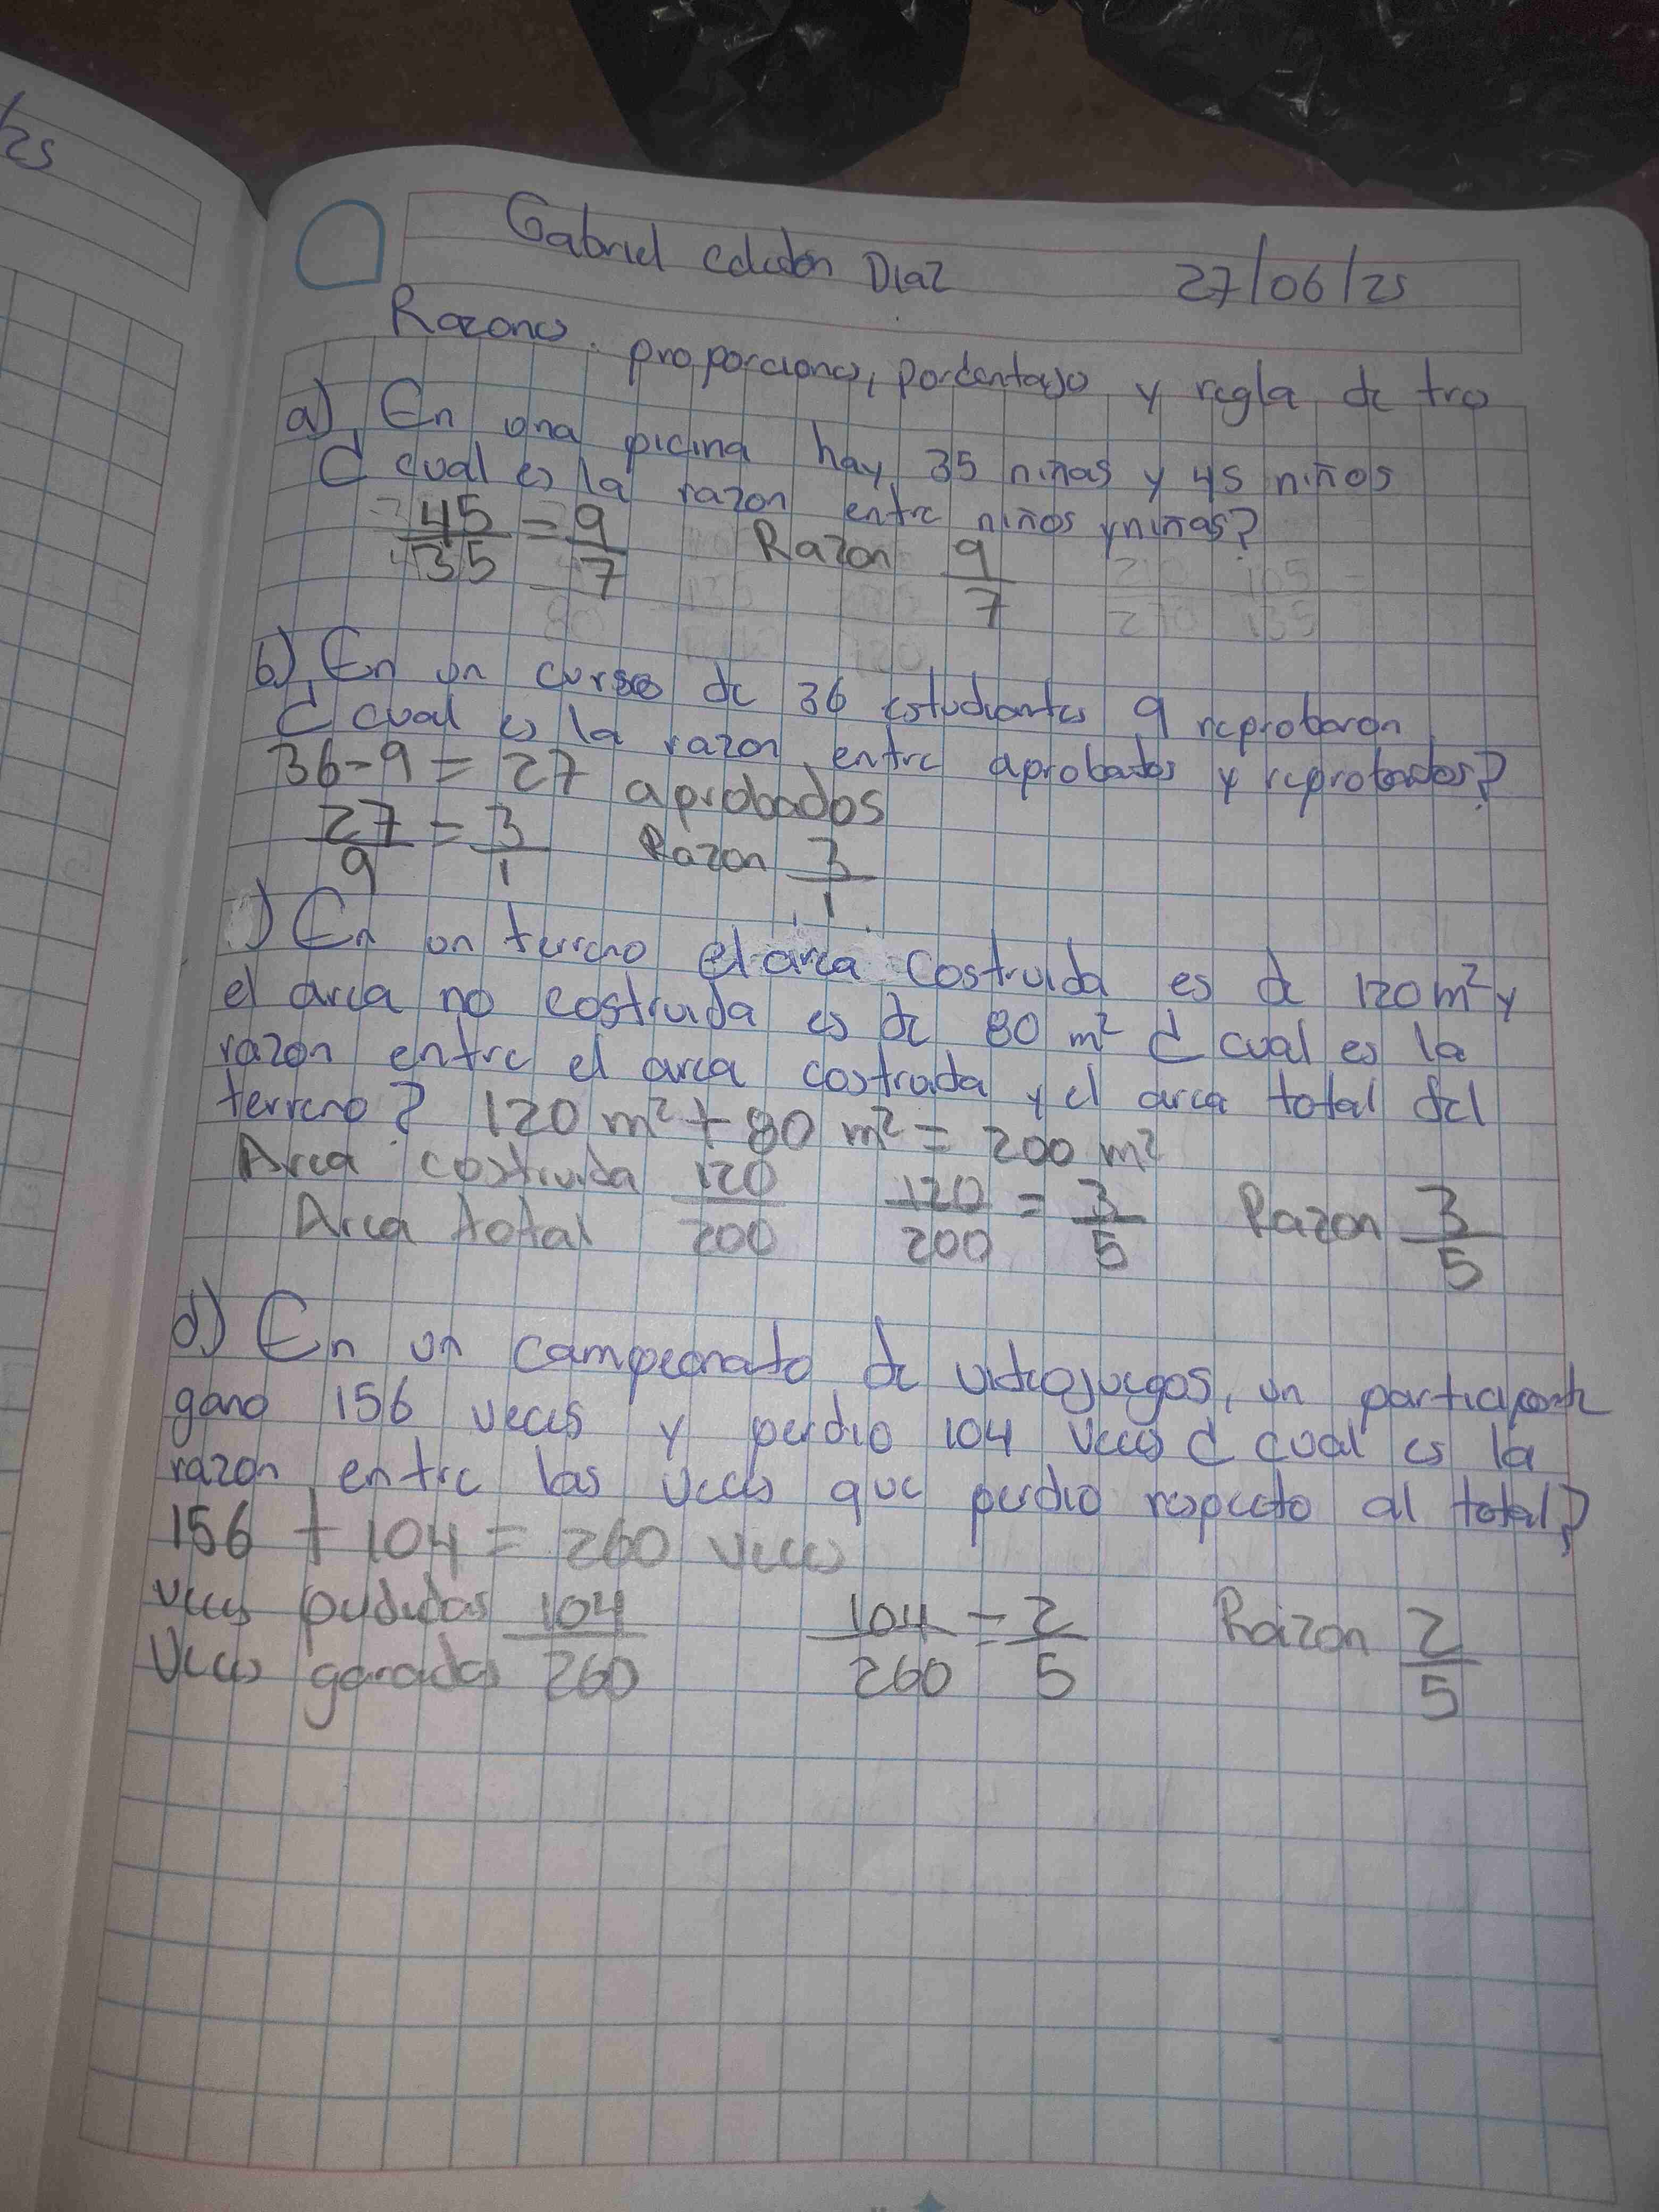 25
Gabriel Diaz 27/06/25
Razones. proporciones, porcentajes y regla de tres
a) En una picina hay 35 niñas y 45 niños
¿cual es la razon entre niños y niñas?
45/35 = 9/7 Razon 9/7
b) En un curso de 36 estudiantes 9 reprobaron
¿cual es la razon entre aprobados y reprobados?
36-9 = 27 aprobados
27/9 = 3/1 Razon 3/1
) En un terreno el area costruida es de 120 m² y
el area no costruida es de 80 m² ¿cual es la
razon entre el area costruida y el area total del
terreno? 120 m² + 80 m² = 200 m²
Area costruida 120
Area total 200
120/200 = 3/5 Razon 3/5
d) En un campeonato de videojuegos, un participante
gano 156 veces y perdio 104 veces ¿cual es la
razon entre las veces que perdio respecto al total?
156 + 104 = 260 veces
veces perdidas 104
Veces ganadas 260
104/260 = 2/5 Razon 2/5